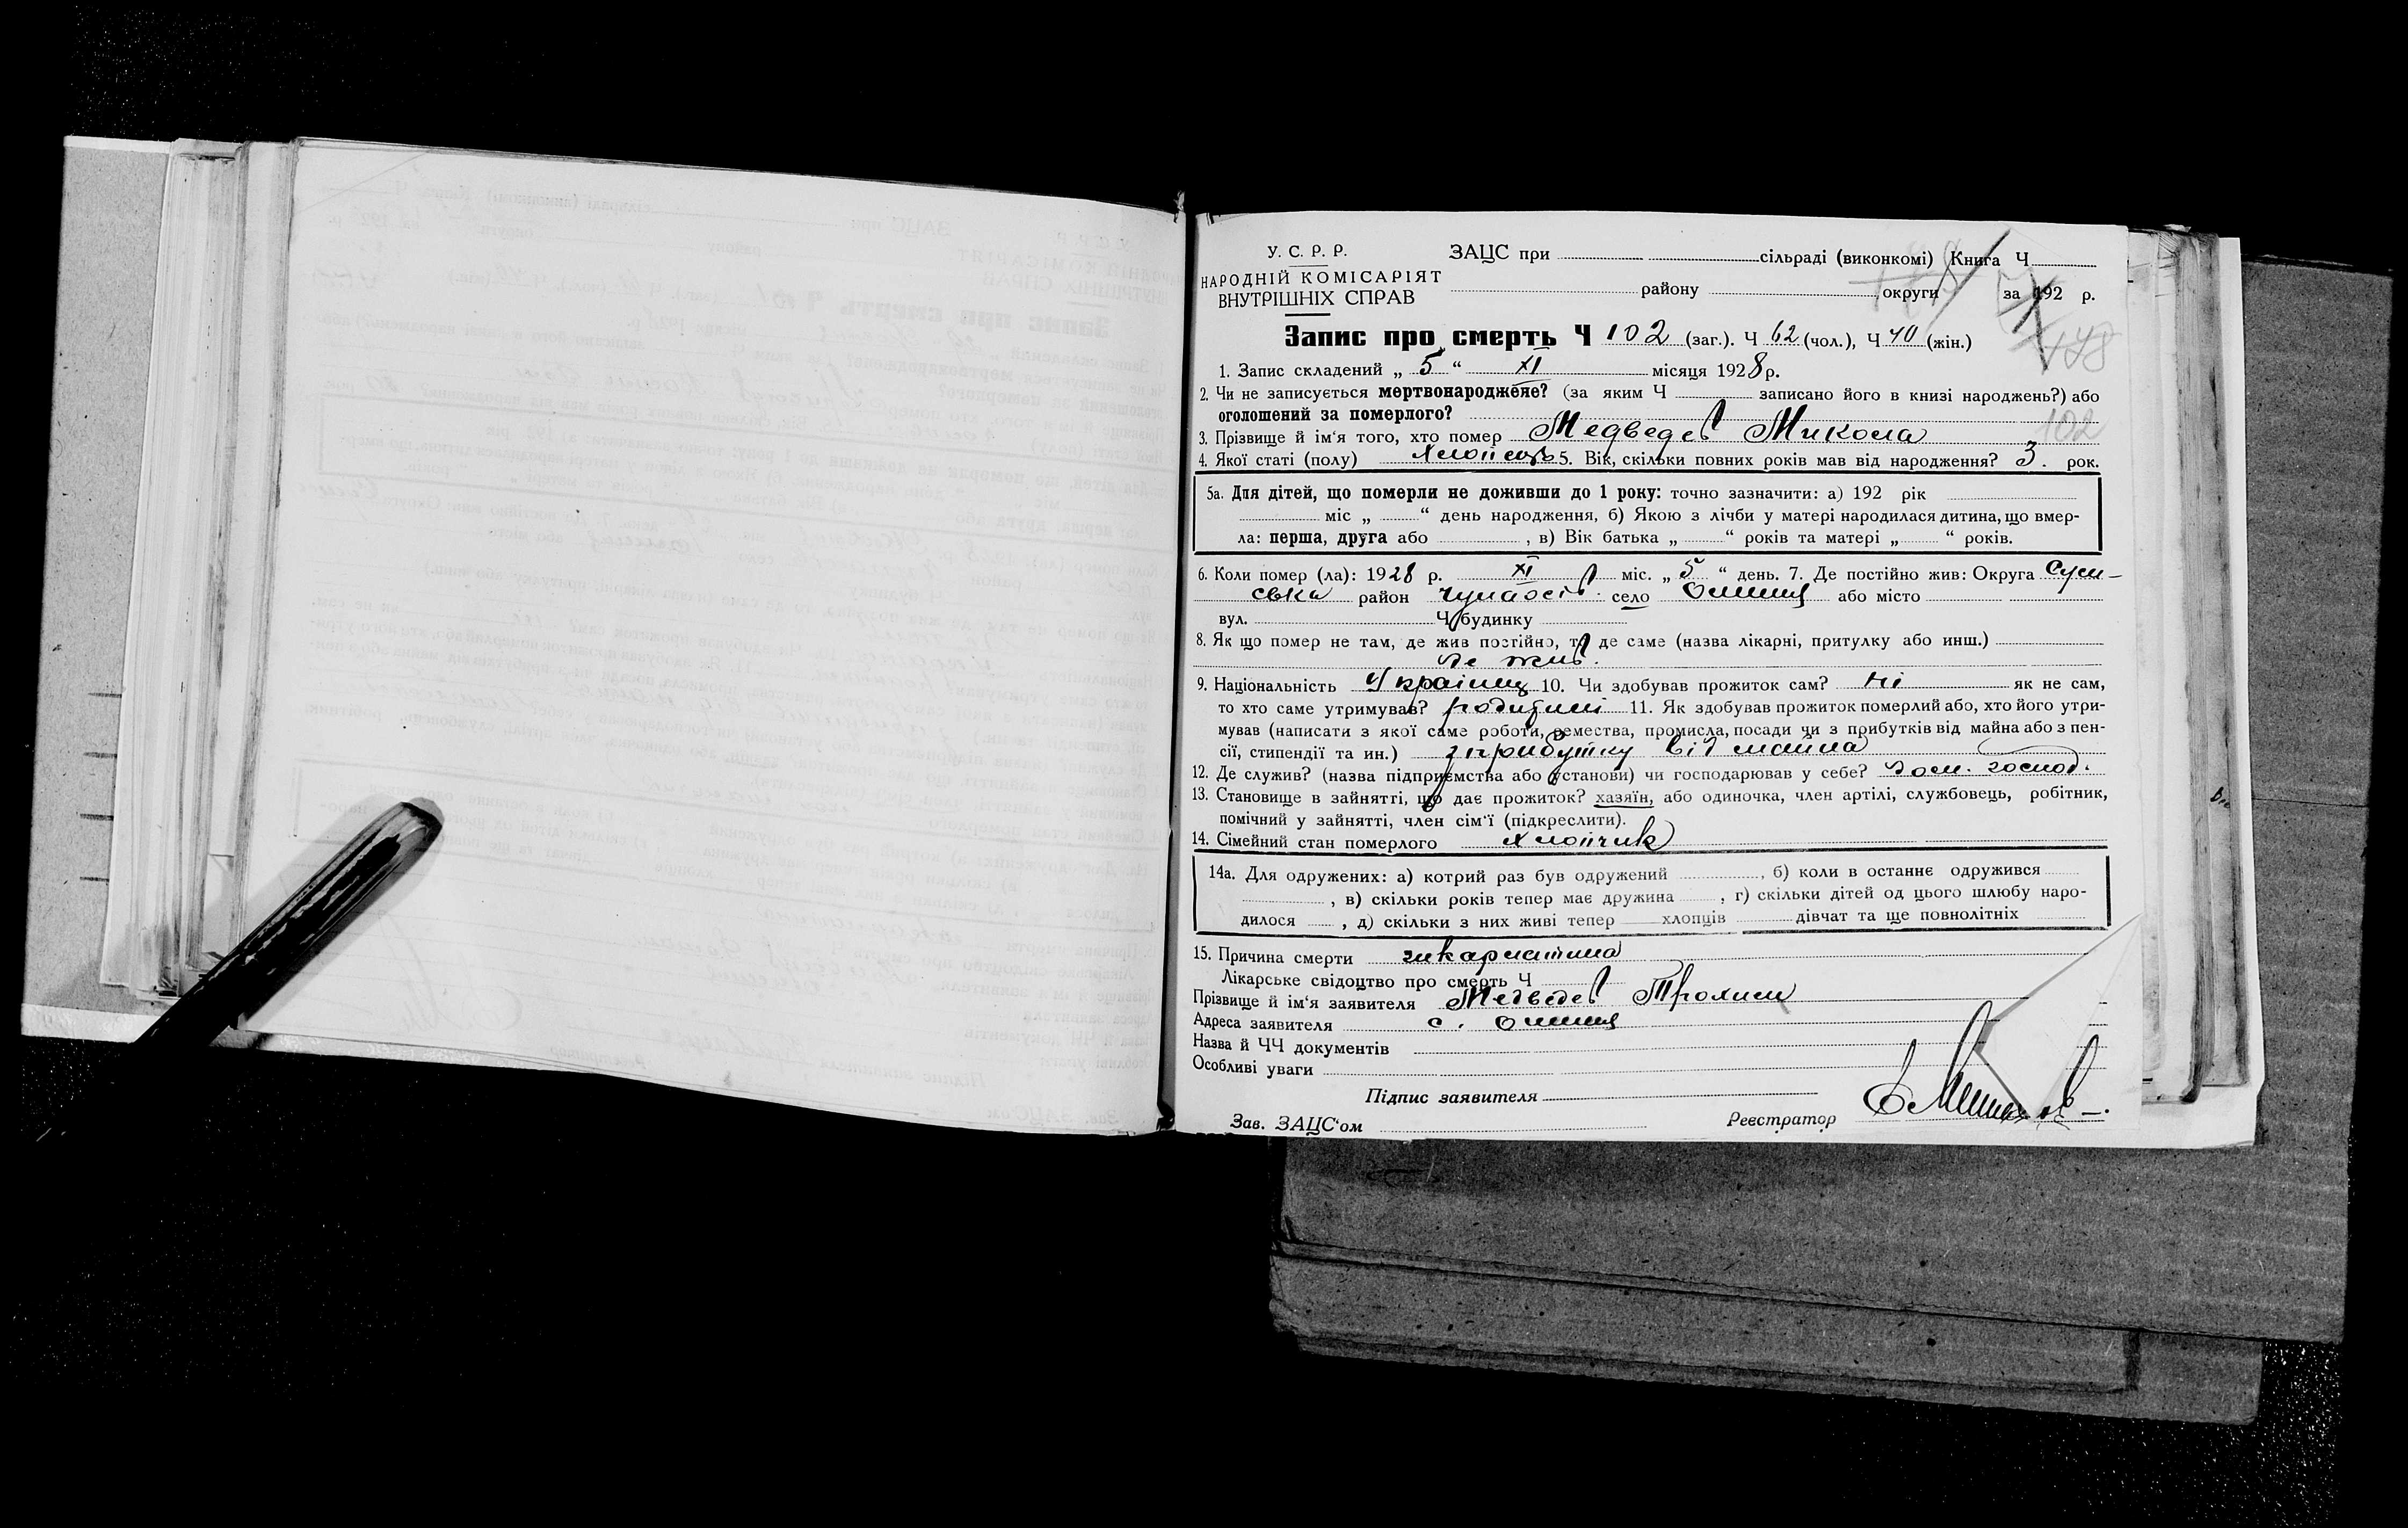 У. С. Р. Р.
НАРОДНІЙ КОМІСАРІЯТ
ВНУТРІШНІХ СПРАВ
ЗАЦС при сільраді (виконкомі) Книга Ч
району округи за 192 р.
Запис про смерть Ч 102 (заг.). Ч 62 (чол.), Ч 40 (жін.)
148
1. Запис складений „ 5 “ XI місяця 1928 р.
2. Чи не записується мертвонароджене? (за яким Ч записано його в книзі народжень?) або
оголошений за померлого?
102
3. Прізвище й ім'я того, хто помер Медведев Микола
4. Якої статі (полу) Хлопець 5. Вік, скільки повних років мав від народження? 3. рок.
5а. Для дітей, що померли не доживши до 1 року: точно зазначити: а) 192 рік
міс „ “ день народження, б) Якою з лічби у матері народилася дитина, що вмер-
ла: перша, друга або , в) Вік батька „ “ років та матері „ “ років.
6. Коли помер (ла): 1928 р. XI міс. „ 5 “ день. 7. Де постійно жив: Округа Сум-
ська район село або місто
вул. Ч будинку
8. Як що помер не там, де жив постійно, то де саме (назва лікарні, притулку або инш.)
де жив.
9. Національність Українец 10. Чи здобував прожиток сам? Ні як не сам,
то хто саме утримував? 11. Як здобував прожиток померлий або, хто його утри-
мував (написати з якої саме роботи, ремества, промисла, посади чи з прибутків від майна або з пен-
сії, стипендії та ин.) з прибутку від майна
12. Де служив? (назва підприємства або установи) чи господарював у себе? дом. господ.
13. Становище в зайнятті, що дає прожиток? хазяїн, або одиночка, член артілі, службовець, робітник,
помічний у зайнятті, член сім'ї (підкреслити).
14. Сімейний стан померлого Хлопчик
14а. Для одружених: а) котрий раз був одружений , б) коли в останнє одружився
, в) скільки років тепер має дружина , г) скільки дітей од цього шлюбу наро-
дилося , д) скільки з них живі тепер хлопців дівчат та ще повнолітніх
15. Причина смерти скарлатина
Лікарське свідоцтво про смерть Ч
Прізвище й ім'я заявителя Медведев
Адреса заявителя с.
Назва й ЧЧ документів
Особливі уваги
Підпис заявителя
Зав. ЗАЦС'ом Реєстратор